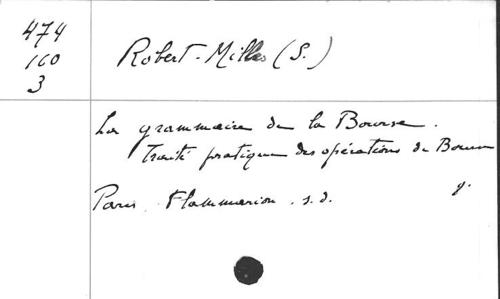 474
160
3
Robert-Milles (S.)
La grammaire de la Bourse.
Traité pratique des opérations de Bourse
Paris. Flammarion. s.d.